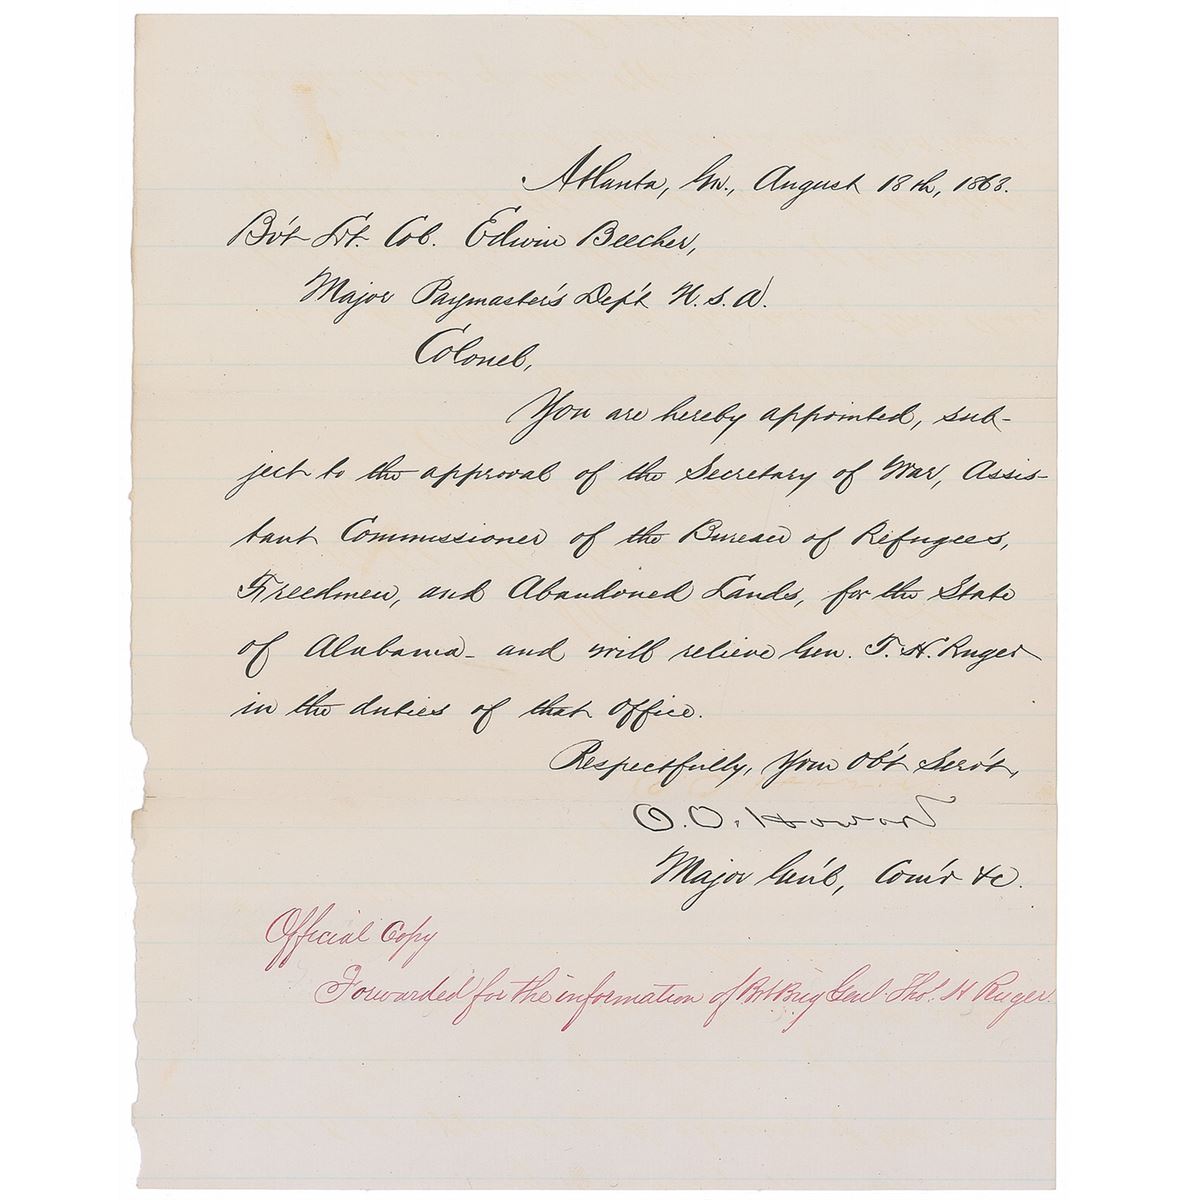 Atlanta, Ga., August 18th, 1868.
Bv't Lt. Col. Edwin Beecher,
Major Paymaster's Dep't U.S.A.
Colonel,
You are hereby appointed, sub-
ject to the approval of the Secretary of War, Assis-
tant Commissioner of the Bureau of Refugees,
Freedmen, and Abandoned Lands, for the State
of Alabama - and will relieve Gen. T. H. Ruger
in the duties of that office.
Respectfully, Your Ob't Serv't,
O. O. Howard
Major Gen'l, Com'r &c.
Official Copy
Forwarded for the information of Bvt Brig Genl Thos. H Ruger.